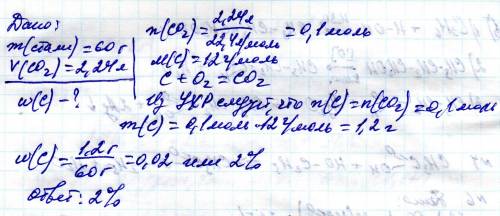 Дано:
m(стали)=60г
V(CO₂)=2,24л
w(C)-?
n(CO₂)=2,24л/22,4л/моль=0,1моль
M(C)=12г/моль
C+O₂=CO₂
Из УХР следует, что n(C)=n(CO₂)=0,1моль
m(C)=0,1моль·12г/моль=1,2г
w(C)=1,2г/60г=0,02 или 2%
ответ: 2%